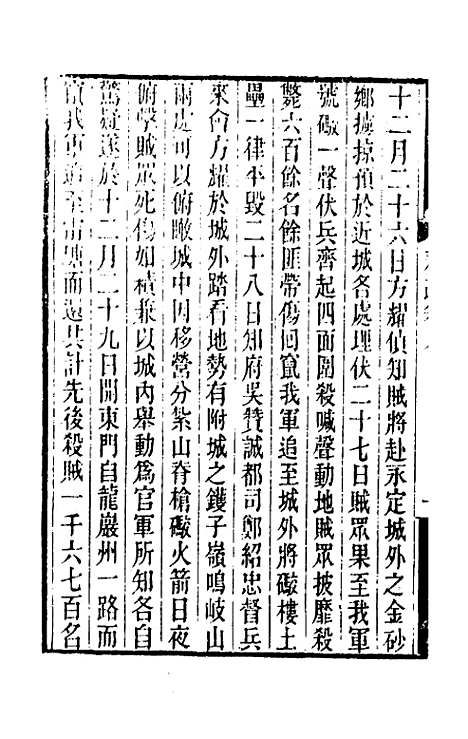 十二月二十六日方耀偵知賊將赴永定城外之金砂
鄉擄掠預於近城各處埋伏二十七日賊眾果至我軍
號礮一聲伏兵齊起四面圍殺喊聲動地賊眾披靡殺
斃六百餘名餘匪帶傷回竄我軍追至城外將礮樓土
壘一律平毀二十八日知府吳贊誠都司鄭紹忠督兵
來會方耀於城外踏看地勢有附城之鑊子嶺鳴岐山
兩處可以俯瞰城中因移營分紮山脊槍礮火箭日夜
俯擊賊眾死傷如積兼以城內舉動為官軍所知各自
驚疑遂於十二月二十九日開東門自龍巖州一路而
竄我軍追至雷塘而還共計先後殺賊一千六七百名